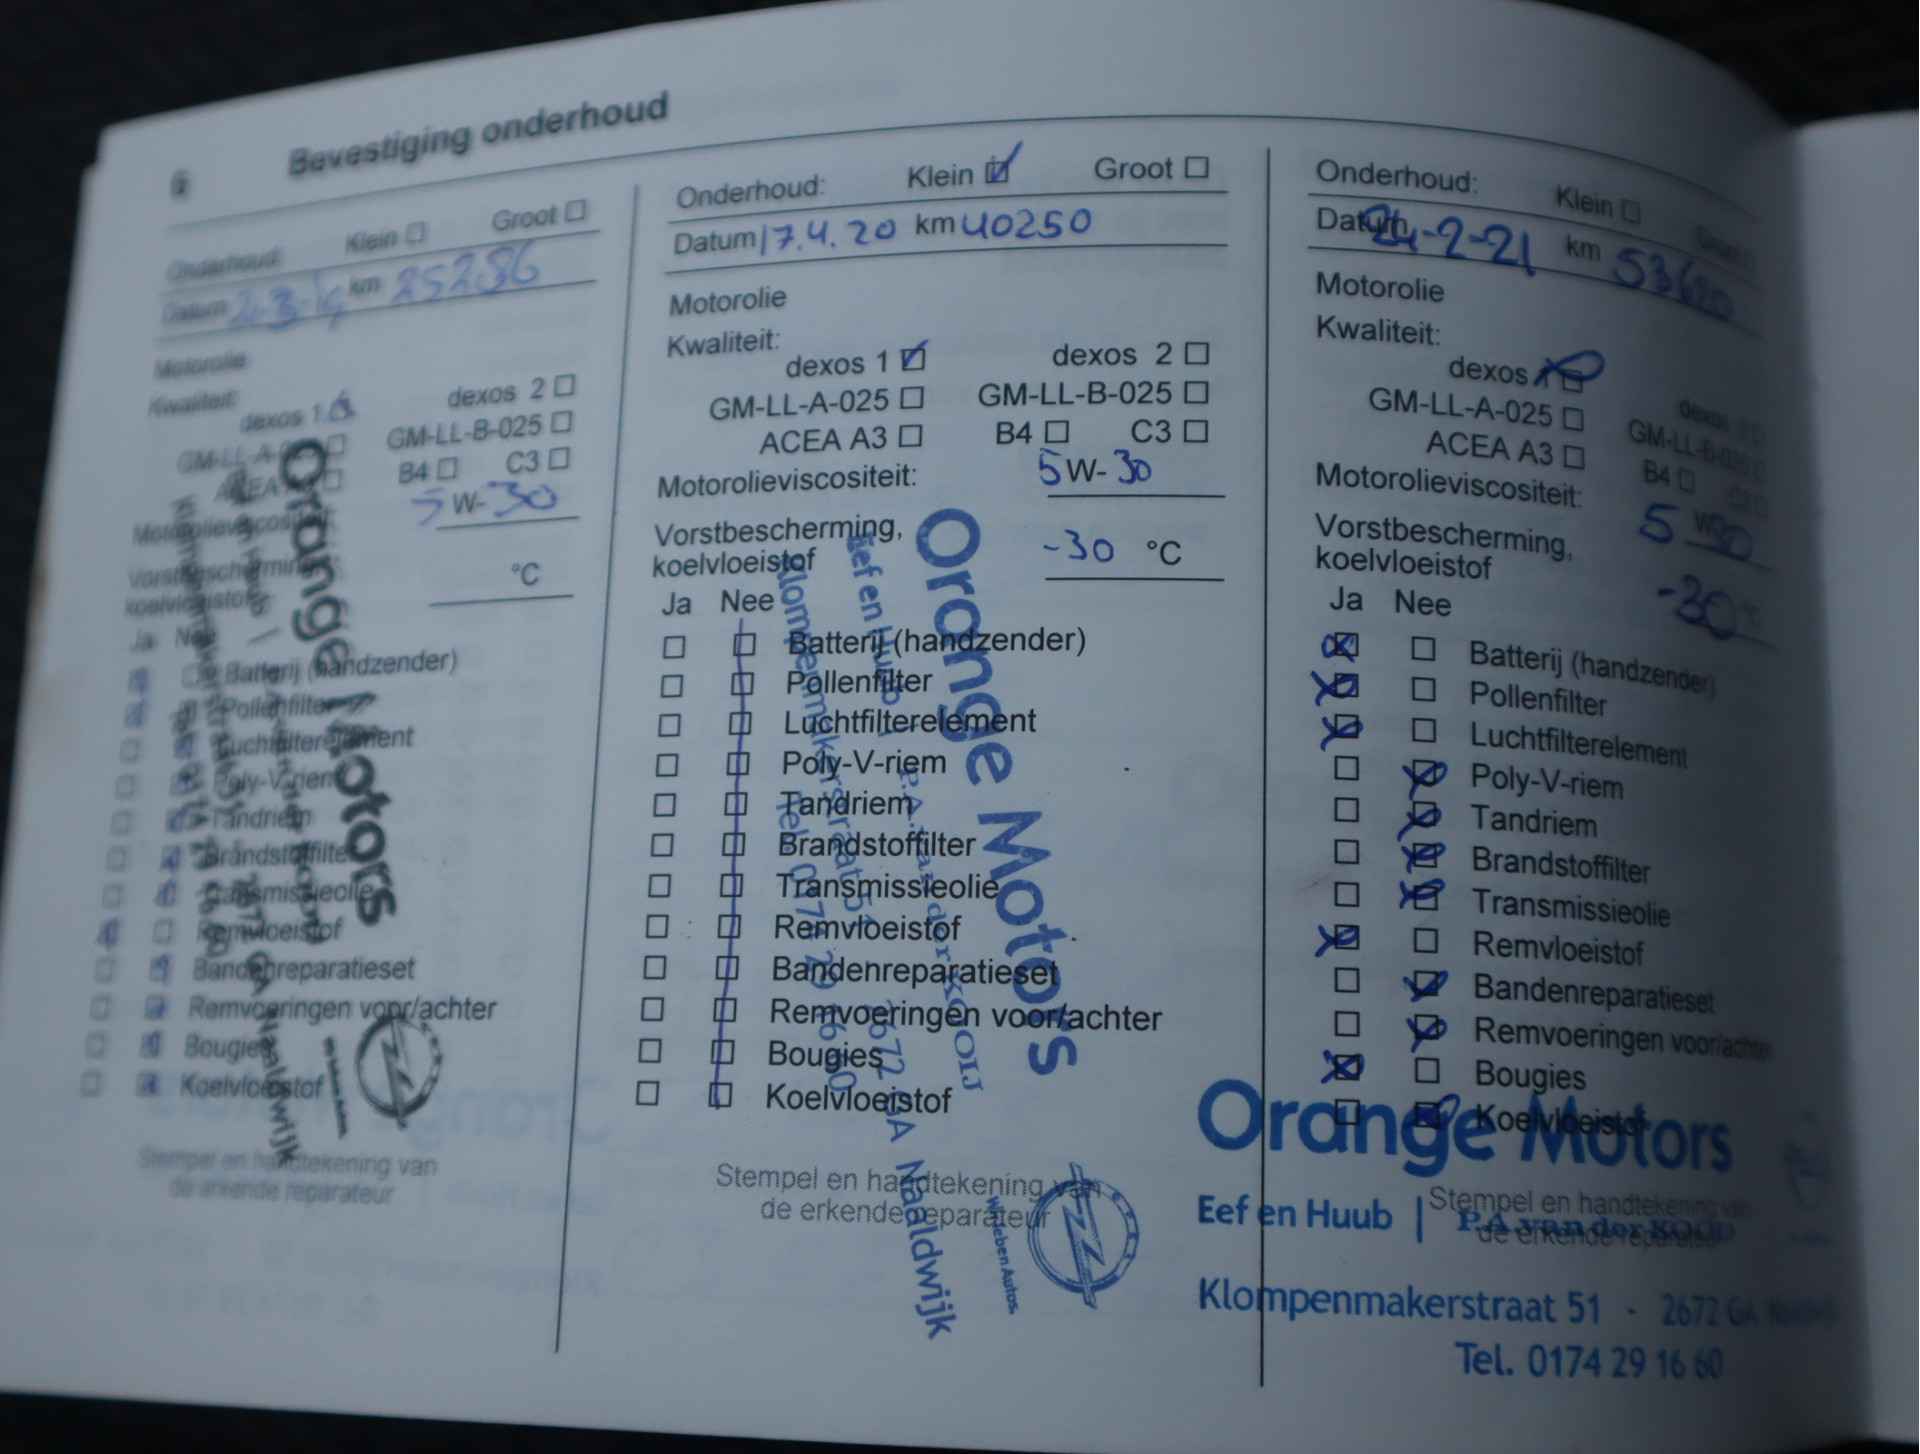 6 Bevestiging onderhoud
Onderhoud: Klein Groot
Datum km 25286
Motorolie
Kwaliteit:
dexos 1 dexos 2
GM-LL-A- GM-LL-B-025
ACEA B4 C3
Motorolieviscositeit: 5 W-30
Vorstbescherming,
koelvloeistof °C
Ja Nee
Batterij (handzender)
Pollenfilter
Luchtfilterelement
Poly-V-riem
Tandriem
Brandstoffilter
Transmissieolie
Remvloeistof
Bandenreparatieset
Remvoeringen voor/achter
Bougies
Koelvloeistof
Stempel en handtekening van
de erkende reparateur
Orange Motors
Naaldwijk
Onderhoud: Klein Groot
Datum 17.4.20 km 40250
Motorolie
Kwaliteit:
dexos 1 dexos 2
GM-LL-A-025 GM-LL-B-025
ACEA A3 B4 C3
Motorolieviscositeit: 5 W-30
Vorstbescherming,
koelvloeistof -30 °C
Ja Nee
Batterij (handzender)
Pollenfilter
Luchtfilterelement
Poly-V-riem
Tandriem
Brandstoffilter
Transmissieolie
Remvloeistof
Bandenreparatieset
Remvoeringen voor/achter
Bougies
Koelvloeistof
Stempel en handtekening van
de erkende reparateur
Orange Motors
Eef en Huub | P.A. van der KOOIJ
Klompenmakerstraat 51 2672 GA Naaldwijk
Tel. 0174 29 16 60
Wir leben Autos.
Onderhoud: Klein
Datum 24-2-21 km 53620
Motorolie
Kwaliteit:
dexos 1 dexos
GM-LL-A-025 GM-LL-B-025
ACEA A3 B4
Motorolieviscositeit: 5 W 30
Vorstbescherming,
koelvloeistof -30 °C
Ja Nee
Batterij (handzender)
Pollenfilter
Luchtfilterelement
Poly-V-riem
Tandriem
Brandstoffilter
Transmissieolie
Remvloeistof
Bandenreparatieset
Remvoeringen voor/achter
Bougies
Koelvloeistof
Orange Motors
Stempel en handtekening van
de erkende reparateur
Eef en Huub | P.A. van der KOOIJ
Klompenmakerstraat 51 - 2672 GA Naaldwijk
Tel. 0174 29 16 60